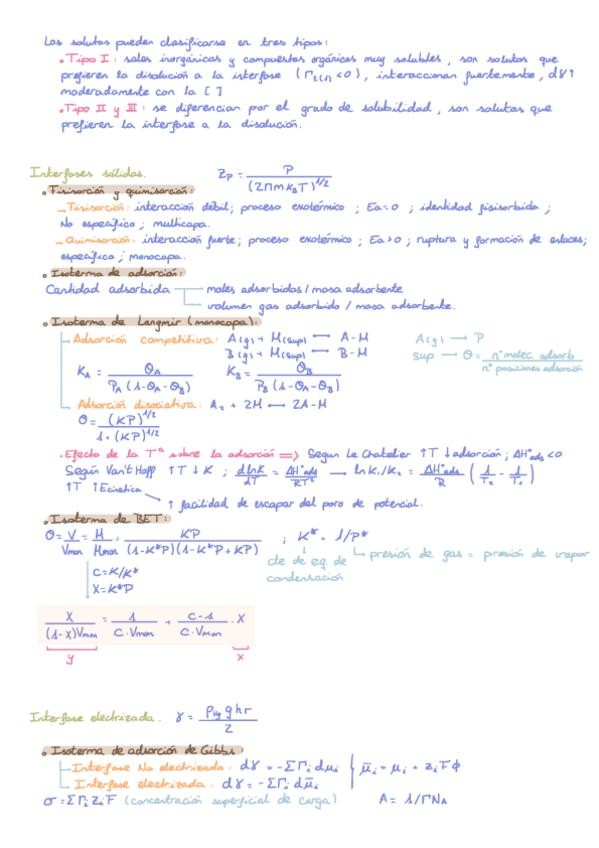 Los solutos pueden clasificarse en tres tipos:
• Tipo I: sales inorgánicas y compuestos orgánicos muy solubles, son solutos que
prefieren la disolución a la interfase (Γ₂(₁) < 0), interaccionan fuertemente, dγ↑
moderadamente con la [ ]
• Tipo II y III: se diferencian por el grado de solubilidad, son solutos que
prefieren la interfase a la disolución.
Interfases sólidas. Zp = P / (2πmkBT)^1/2
• Fisisorción y quimisorción:
→ Fisisorción: interacción débil; proceso exotérmico; Ea=0; identidad fisisorbida;
No específico; multicapa.
→ Quimisorción: interacción fuerte; proceso exotérmico; Ea>0; ruptura y formación de enlaces;
específica; monocapa.
• Isoterma de adsorción:
Cantidad adsorbida moles adsorbidas / masa adsorbente
volumen gas adsorbido / masa adsorbente.
• Isoterma de Langmir (monocapa):
Adsorción competitiva: A(g) + M(sup) ⟷ A-M A(g) → P
B(g) + M(sup) ⟷ B-M sup → θ = nº molec adsorb / nº posiciones adsorción
KA = θA / PA(1-θA-θB) KB = θB / PB(1-θA-θB)
Adsorción disociativa: A₂ + 2M ⟷ 2A-M
θ = (KP)^1/2 / 1+(KP)^1/2
• Efecto de la Tª sobre la adsorción => Segun Le Chatelier ↑T ↓adsorción; ΔHºads<0
Según Van't Hoff ↑T ↓K ; dlnK/dT = ΔHºads/RT² → ln K₁/K₂ = ΔHºads/R (1/T₂ - 1/T₁)
↑T ↑Ecinética
↑ facilidad de escapar del pozo de potencial.
• Isoterma de BET:
θ = V/Vmon = M/Mmon = KP / (1-K*P)(1-K*P+KP) ; K* = 1/P*
cte de eq. de condensación
presión de gas = presión de vapor
C=K/K*
X=K*P
X / (1-X)Vmon = 1 / C·Vmon + C-1 / C·Vmon · X
y x
Interfase electrizada. γ = ρHg g h r / 2
• Isoterma de adsorción de Gibbs:
Interfase No electrizada: dγ = -ΣΓi dμi μ̄i = μi + ziFϕ
Interfase electrizada: dγ = -ΣΓi dμ̄i
σ = ΣΓi Zi F (concentración superficial de carga) A = 1/ΓNA